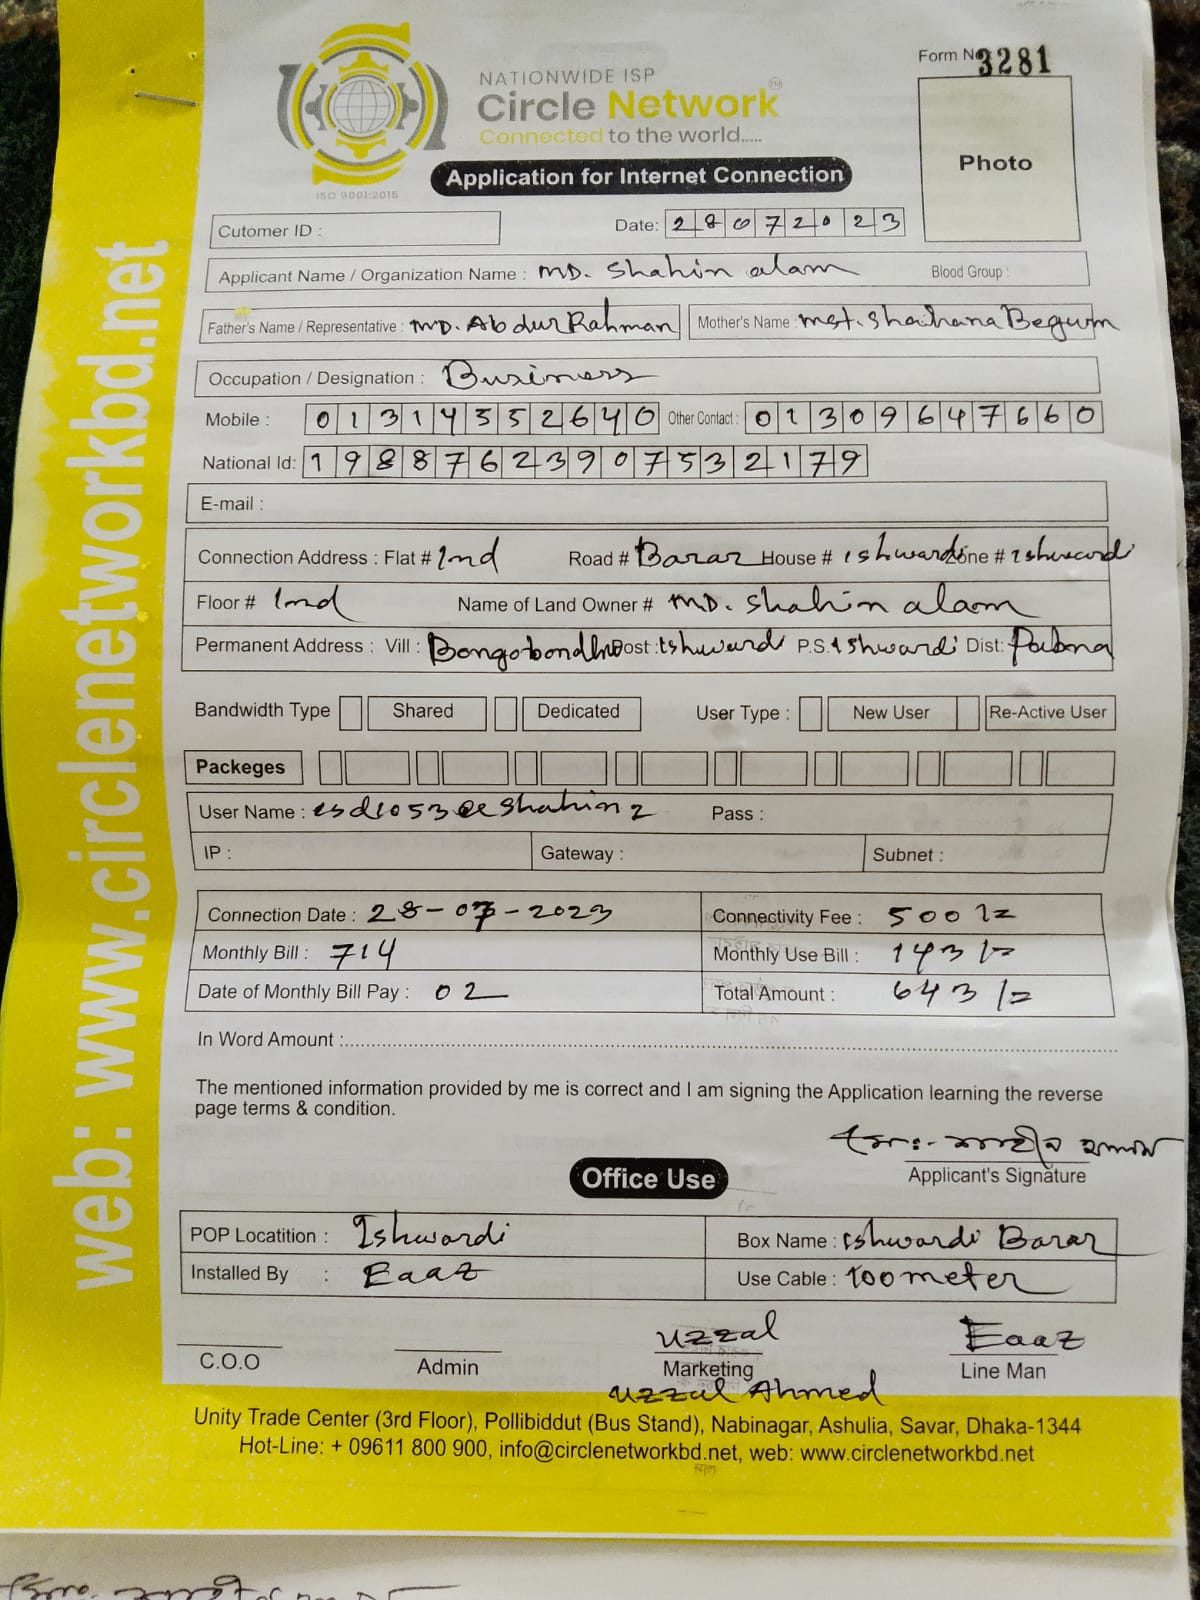 Form No 3281
NATIONWIDE ISP
Circle Network TM
Connected to the world.....
ISO 9001:2015
Photo
Application for Internet Connection
Cutomer ID :
Date: 28072023
Applicant Name / Organization Name : MD. Shahin alam Blood Group :
Father's Name / Representative : MD. Abdur Rahman Mother's Name : Mst. Shahana Begum
Occupation / Designation : Business
Mobile : 01314552640 Other Contact : 01309647660
National Id: 19887623907532179
E-mail :
Connection Address : Flat # 1nd Road # Barar House # ishwardi Zone # ishwardi
Floor # 1nd Name of Land Owner # MD. Shahin alam
Permanent Address : Vill : Bongobondhu Post : ishwardi P.S. ishwardi Dist: Pabna
Bandwidth Type Shared Dedicated User Type : New User Re-Active User
Packeges
User Name : esd1053@shahin2 Pass :
IP : Gateway : Subnet :
Connection Date : 28-07-2023 Connectivity Fee : 500/=
Monthly Bill : 714 Monthly Use Bill : 143/=
Date of Monthly Bill Pay : 02 Total Amount : 643/=
In Word Amount :
The mentioned information provided by me is correct and I am signing the Application learning the reverse
page terms & condition.
মোঃ শাহীন আলম
Applicant's Signature
Office Use
POP Locatition : Ishwardi Box Name : ishwardi Barar
Installed By : Eaaz Use Cable : 100 meter
uzzal Eaaz
C.O.O Admin Marketing Line Man
uzzal Ahmed
Unity Trade Center (3rd Floor), Pollibiddut (Bus Stand), Nabinagar, Ashulia, Savar, Dhaka-1344
Hot-Line: + 09611 800 900, info@circlenetworkbd.net, web: www.circlenetworkbd.net
web: www.circlenetworkbd.net